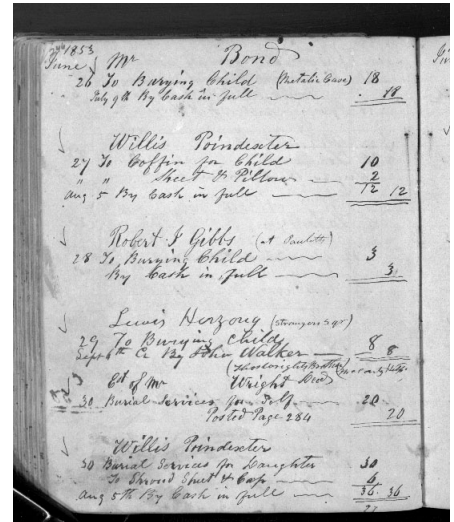 1853
June Mr Bond
26 To Burying Child (Metalic Case) 18
July 9th By Cash in full 18
Willis Poindexter
27 To Coffin for Child 10
" " Sheet & Pillow 2
Aug 5 By Cash in full 12 12
Robert J Gibbs (at Pauletts)
28 To Burying Child 3
By Cash in full 3
Lewis Herzong (Strangers Gr)
29 To Burying Child 8
Sept 6th By John Walker 8
Est of Mr Wright Decd
30 Burial Services for Self 20
Posted Page 284 20
Willis Poindexter
30 Burial Services for Daughter 30
To Shroud Sheet & Cap 6
Aug 5th By Cash in full 36 36